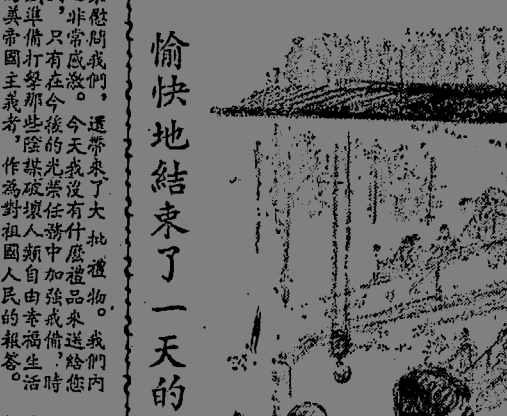 愉快地結束了一天的
慰問我們，還帶來了大批禮物。我們內
非常感激。今天我沒有什麼禮品來送給您
，只有在今後的光榮任務中加強戒備，時
準備打擊那些陰謀破壞人類自由幸福生活
美帝國主義者，作為對祖國人民的報答。